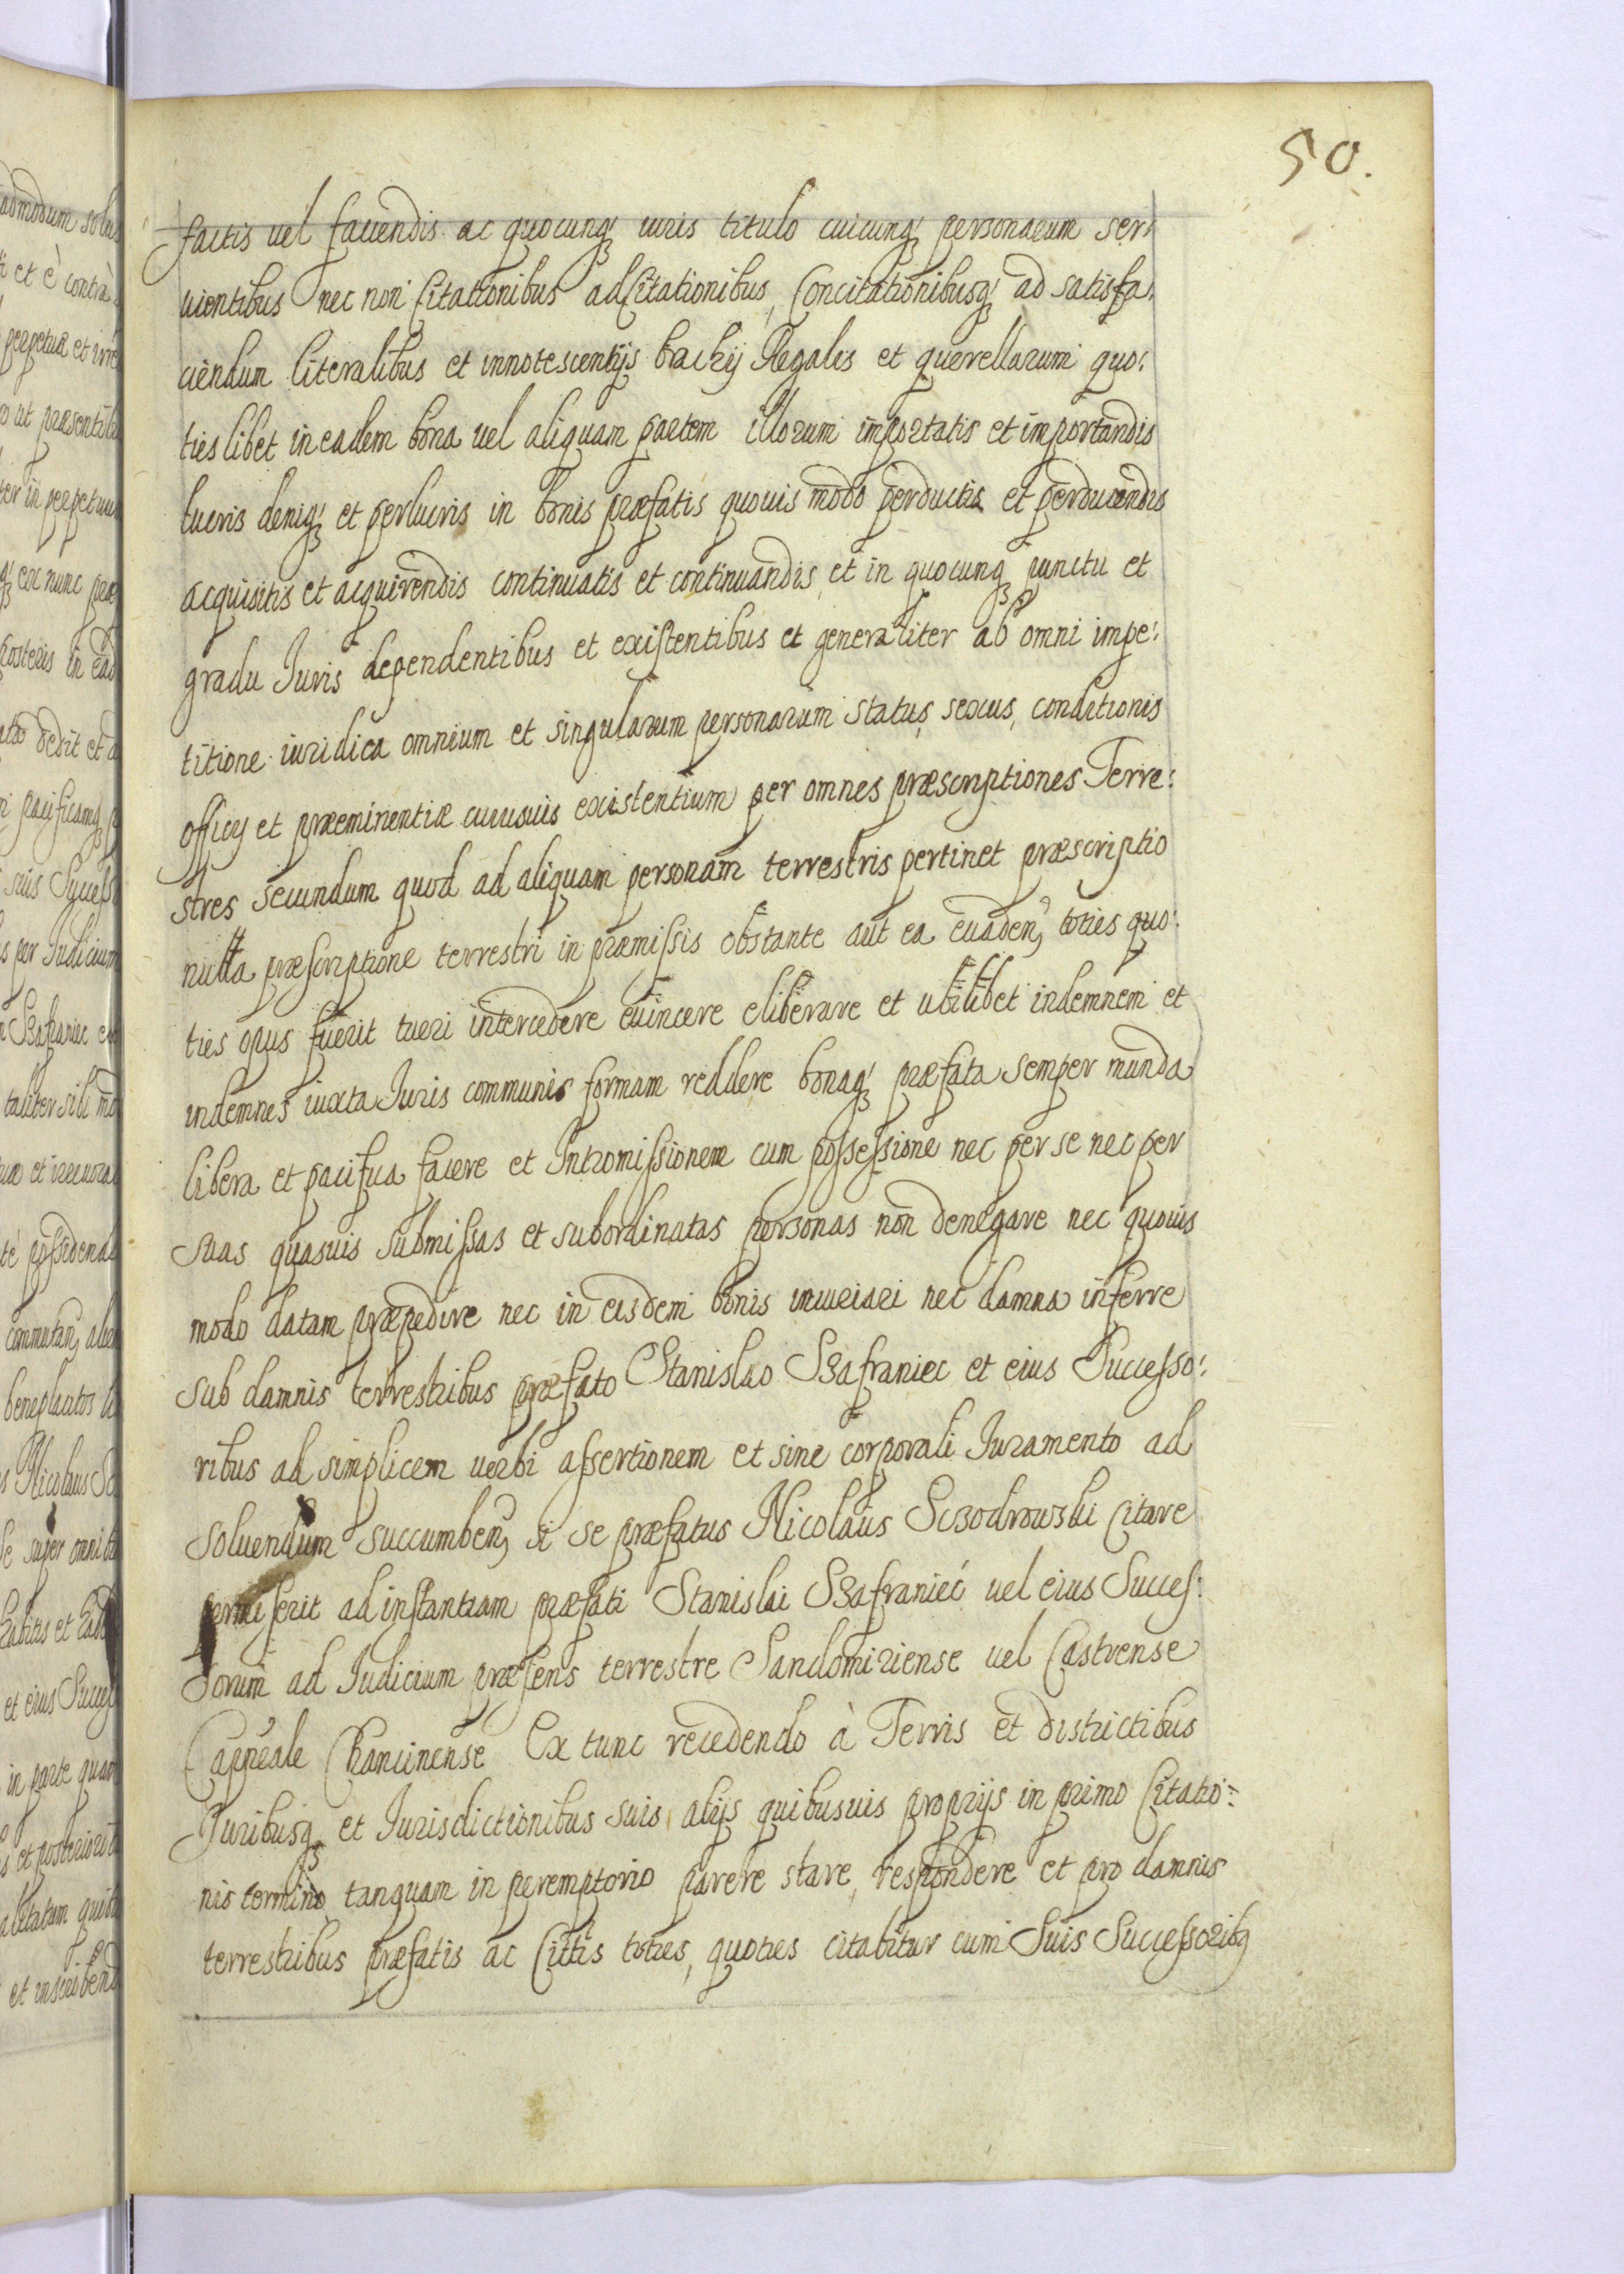 50.
factis uel faciendis ac quocunq iuris titulo cuicunq personarum ser:
uientibus nec non Citationibus adCitationibus, Concitationibusq ad satisfa:
ciendum literalibus et innotescentijs brachij Regalis et querellarum quo:
ties libet in eadem bona uel aliquam partem illorum importatis et importandis
lucris deniq et perlucris in bonis præfatis quouis modo perductis et perducendis
acquisitis et acquirendis continuatis et continuandis et in quocunq punctu et
gradu Juris dependentibus et existentibus et generaliter ab omni impe:
titione iuridica omnium et singularum personarum status, sexus, conditionis
officij et præeminentiæ cuiusuis existentium per omnes præscriptiones Terre:
stres secundum quod ad aliquam personam terrestris pertinet præscriptio
nulla præscriptione terrestri in præmissis obstante aut ea euaden, toties quo:
ties opus fuerit tueri intercedere euincere eliberare et ubilibet indemnem et
indemnes iuxta Juris communis formam reddere bonaq præfata semper munda
libera et pacifica facere et Intromissionem cum possessione nec per se nec per
suas quasuis submissas et subordinatas personas non denegare nec quouis
modo datam præpedire nec in eisdem bonis iniuriari nec damna inferre
sub damnis terrestribus præfato Stanislao Szafraniec et eius Successo:
ribus ad simplicem uerbi assertionem et sine corporali Juramento ad
soluendum succumben, si se præfatus Nicolaus Sczodrowski Citare
permiserit ad instantiam præfati Stanislai Szafraniec uel eius Succes:
sorum ad Judicium præsens terrestre Sandomiriense uel Castrense
Capneale Chancinense Ex tunc recedendo à Terris et districtibus
Juribusq et Jurisdictionibus suis alijs quibusuis proprijs in primo Citatio:
nis termino tanquam in peremptorio parere stare, respondere et pro damnis
terrestribus præfatis ac Citis toties, quoties citabitur cum Suis Successoribq